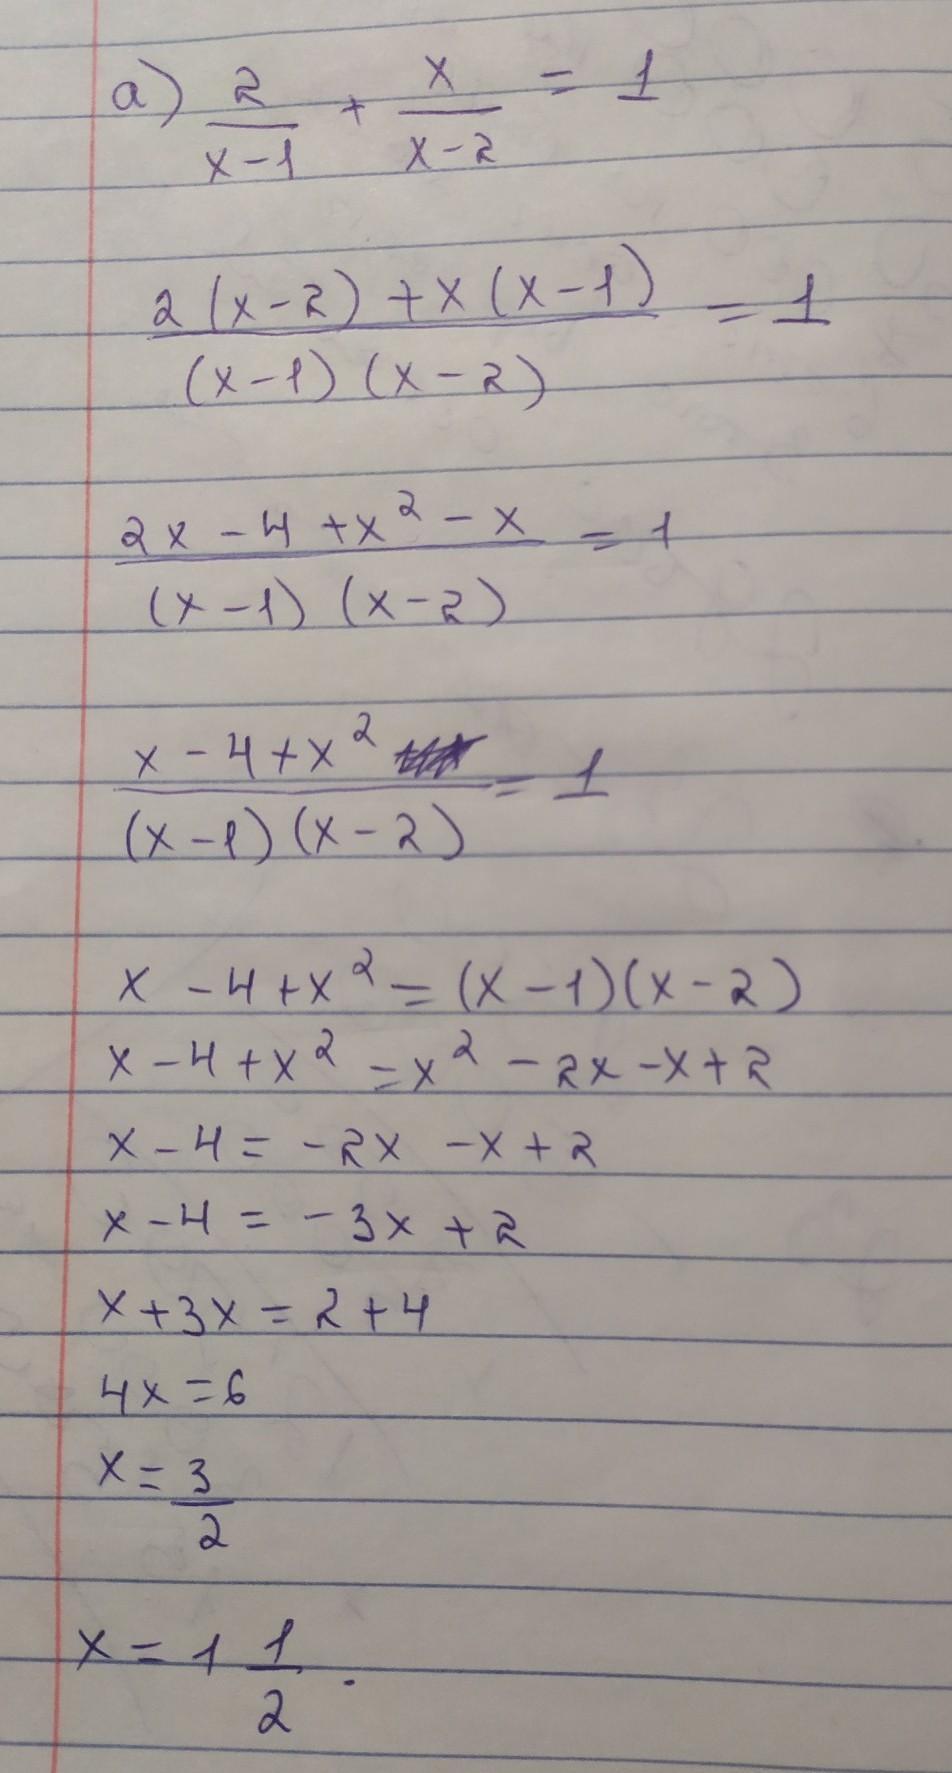 a) 2/(x-1) + x/(x-2) = 1
(2(x-2)+x(x-1))/((x-1)(x-2)) = 1
(2x-4+x²-x)/((x-1)(x-2)) = 1
(x-4+x²)/((x-1)(x-2)) = 1
x-4+x² = (x-1)(x-2)
x-4+x² = x²-2x-x+2
x-4 = -2x-x+2
x-4 = -3x+2
x+3x = 2+4
4x = 6
x = 3/2
x = 1 1/2.